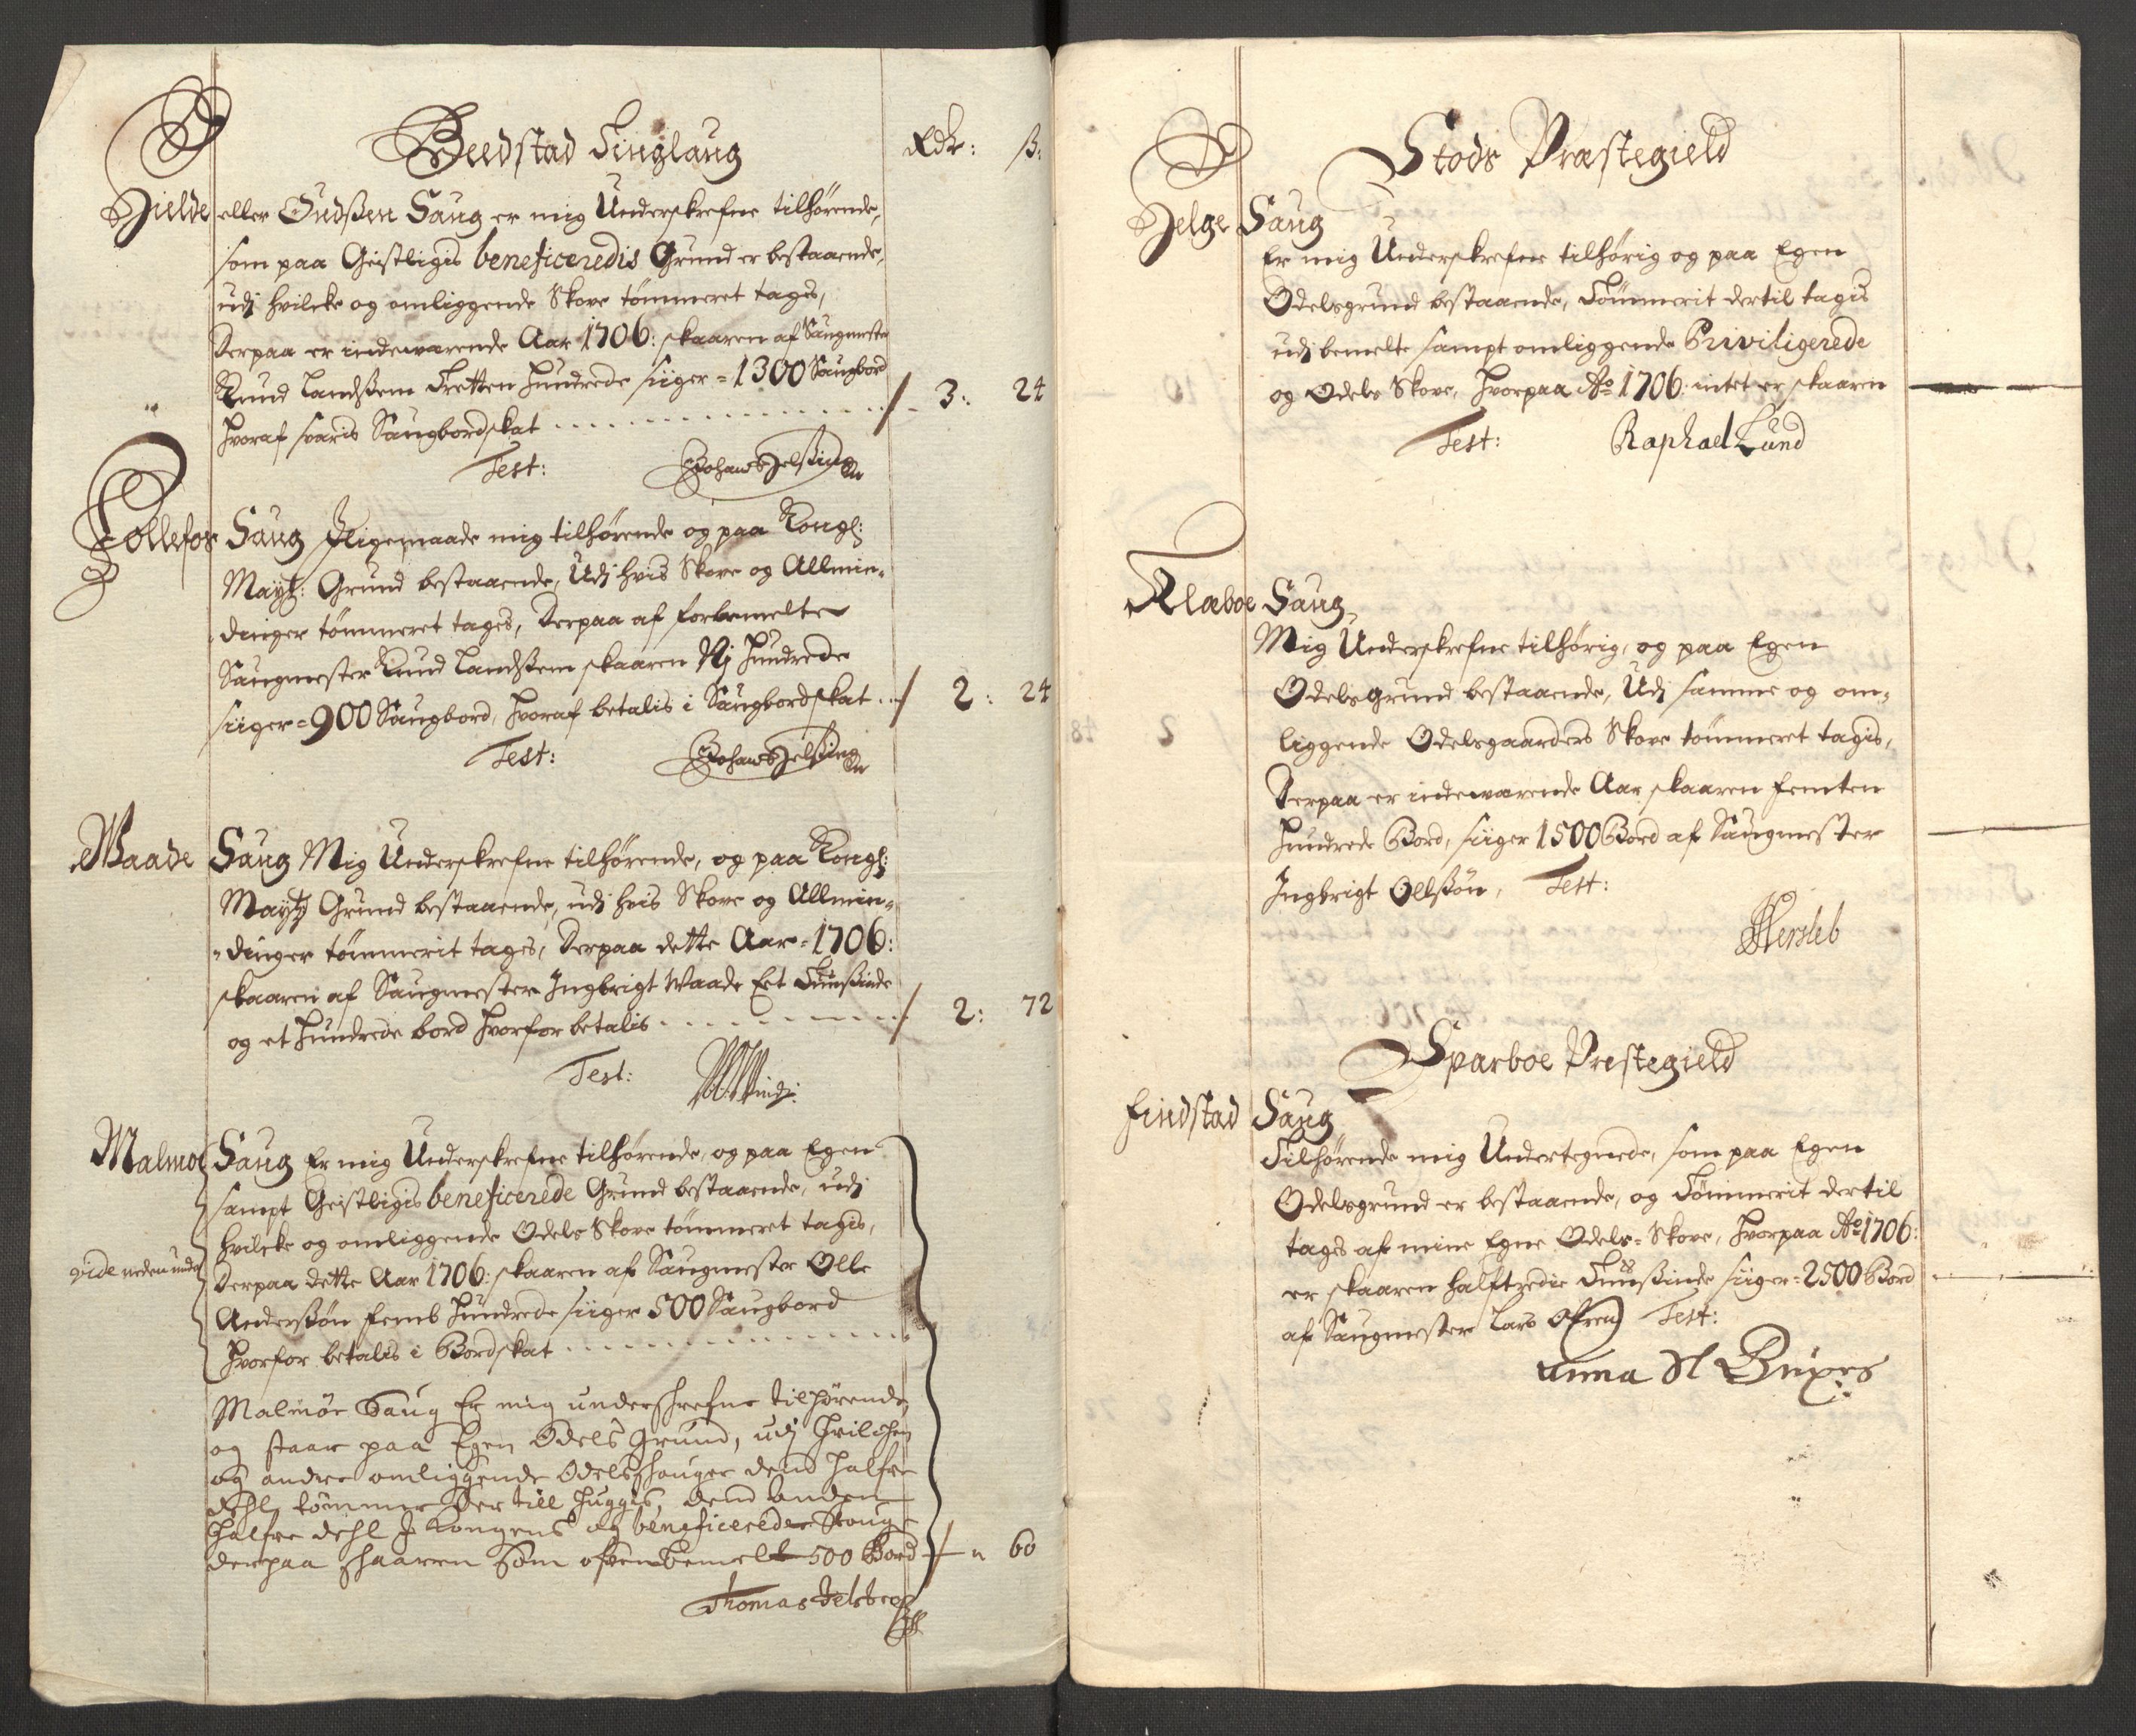 Beedstad Tinglaug
Rdr: ß:
Hielde eller Gudßen Saug er mig Underskrefne tilhørende,
som paa Geistligis beneficeredis Grund er bestaaende,
udj hvilcke og omliggende Skove tømmeret tages,
Derpaa er indewærende Aar 1706: skaaren af Saugmester
Knud Landßem Tretten Hundrede siiger = 1300 Saugbord
hvoraf svaris Saugbordskat / 3: 24
Test:
Follefos Saug Jligemaade mig tilhørende og paa Kongl:
Maytz: Grund bestaaende, Udj hvis Skove og Allmin-
dinger tømmeret tages, Derpaa af forbemelte
Saugmester Knud Landßem skaaren Nj Hundrede
siiger = 900 Saugbord, hvoraf betalis i Saugbordskat / 2: 24
Test:
Waade Saug Mig Underskrefne tilhørende, og paa Kongl:
Maytz Grund bestaaende, udj hvis Skove og Allmin-
dinger tømmerit tages, Derpaa dette Aar = 1706:
skaaren af Saugmester Ingbrigt Waade Eet Tuusinde
og et Hundrede bord hvorfor betalis / 2: 72
Test:
Malmoe Saug Er mig Underskrefne tilhørende, og paa Egen
sampt Geistligis beneficerede Grund bestaaende, udj
hvilcke og omliggende Odels Skove tømmeret tagis,
vide neden under
Derpaa dette Aar 1706: skaaren af Saugmester Olle
Anderßøn femb Hundrede siiger 500 Saugbord
hvorfor betalis i Bordskat
Malmøe Saug Er mig underschrefne tilhørende,
og staar paa Egen Odels Grund, udj hvilchen
og andre omliggende Odelsschouge dend halfve
dehl tømmer der till huggis, dend anden
halfve dehl J Kongens og beneficerede Skouge
derpaa schaaren som ofvenbemelt 500 Bord / " 60
Stods Præstegield
Helge Saug
Er mig Underskrefne tilhørig og paa Egen
Odelsgrund bestaaende, Tømmerit dertil tagis
udj bemelte sampt omliggende Priviligerede
og Odels Skove, hvorpaa Ao 1706: intet er skaaren
Test: Raphael Lund
Klæboe Saug
Mig Underskrefne tilhørig, og paa Egen
Odelsgrund bestaaende, Udj samme og om-
liggende Odelsgaarders Skove tømmeret tagis,
Derpaa er indewærende Aar skaaren femten
Hundrede Bord, siiger 1500 Bord af Saugmester
Ingbrigt Olßøn, Test:
Hersleb
Sparboe Prestegield
Findstad Saug
Tilhørende mig Undertegnede, som paa Egen
Odelsgrund er bestaaende, og Tømmerit dertil
tages af mine Egne Odels-Skove, hvorpaa Ao 1706:
er skaaren halftredie Tuusinde siiger = 2500 Bord
af Saugmester Lars Test:
Anna Sl